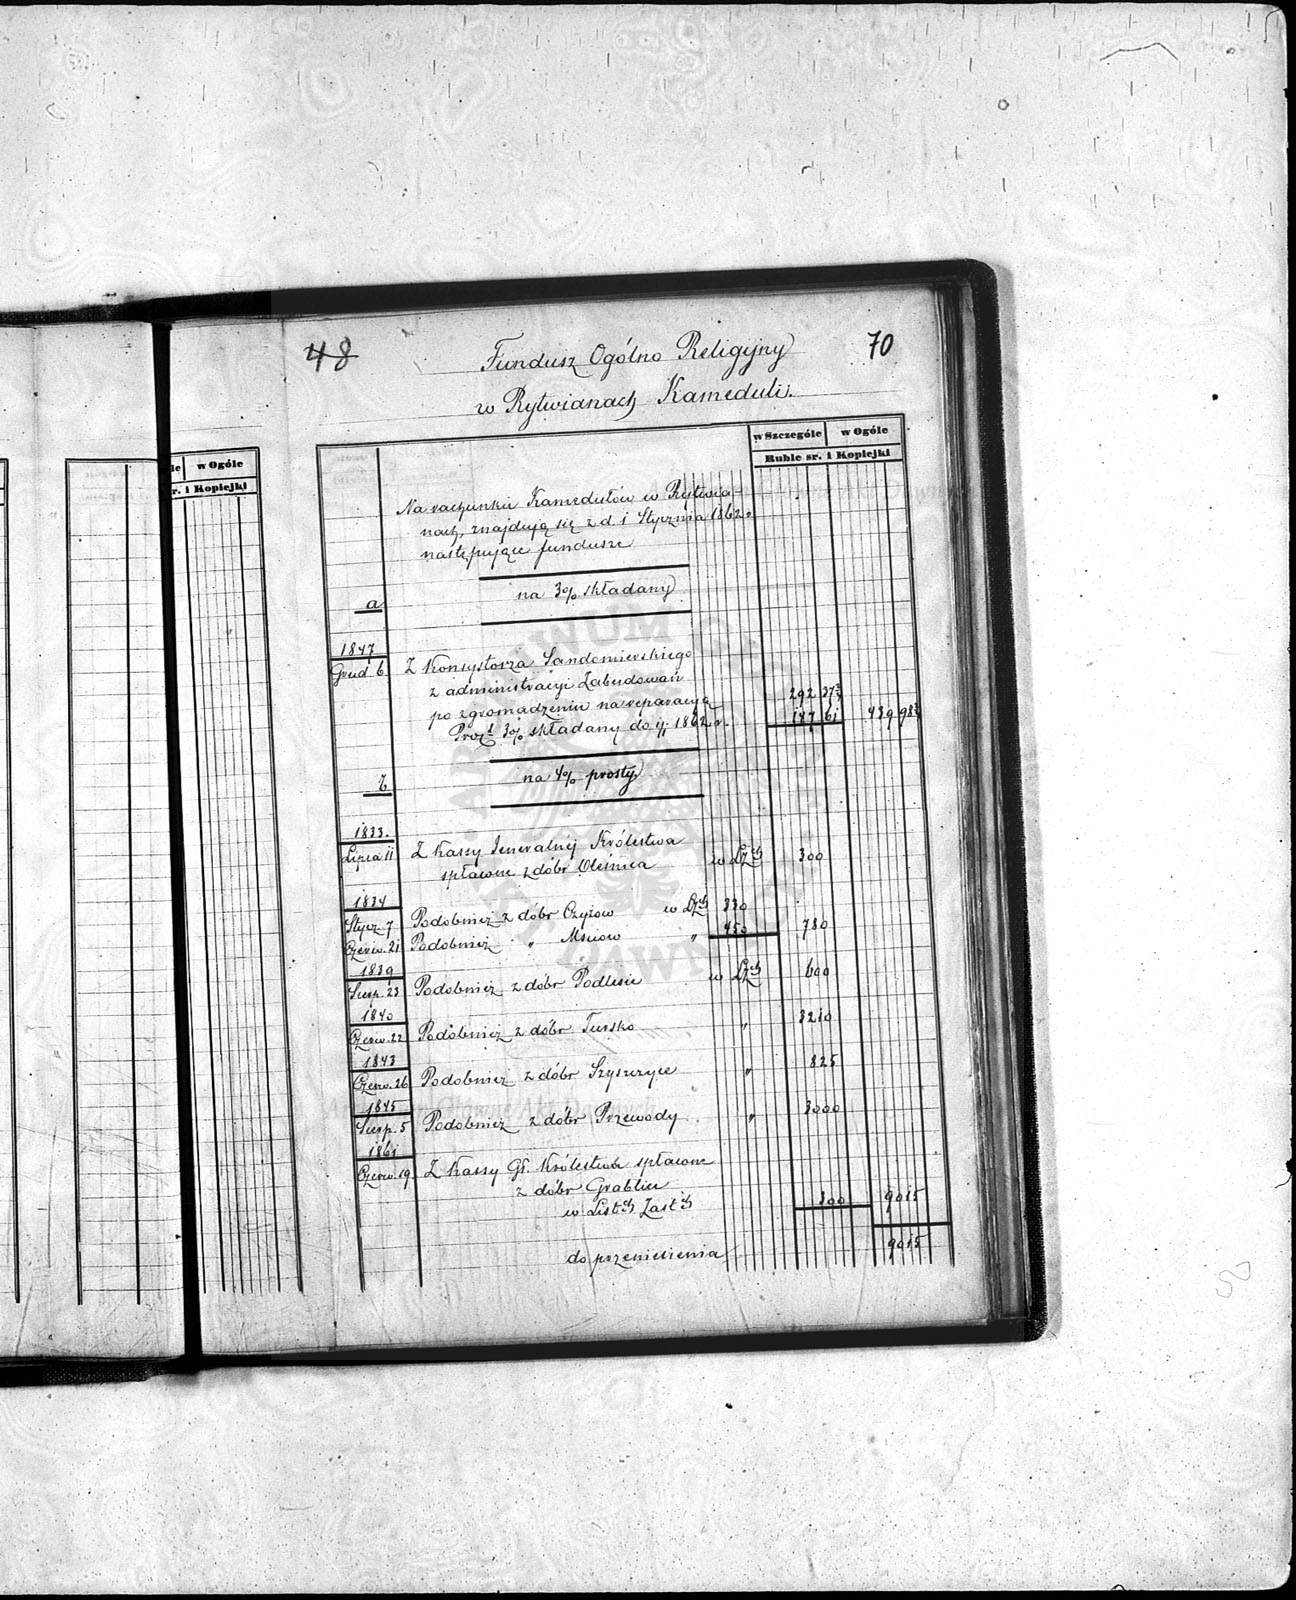 48
Fundusz Ogólno Religijny
70
w Rytwianach Kameduli.
w Ogóle
r. i Kopiejki
w Szczególe
w Ogóle
Ruble sr. i Kopiejki
Na rachunku Kamedułów w Rytwia-
nach, znajdują się z d. 1 Stycznia 1862 r.
następujące fundusze
a
na 3% składany
1847
Grud. 6
Z Konsystorza Sandomierskiego
z administracyi Zabudowań
po zgromadzeniu na reparacyą
292 37½
Proct 3% składany do 1/1 1862 r.
147 61
439 98½
b
na 4% prosty
1833.
Lipca 11
Z Kassy Jeneralnéj Królestwa
spłacone z dóbr Oleśnica
w LZch
300
1834
Stycz. 7
Podobnież z dóbr Czyżow
w LZch
330
Czerw. 21
Podobnież " Msciow
"
450
780
1839
Sierp. 23
Podobnież z dóbr Podlesie
w LZch
600
1840
Czerw. 22
Podobnież z dóbr Tursko
"
3210
1843
Czerw. 26
Podobnież z dóbr Szyszczyce
"
825
1845
Sierp. 5
Podobnież z dóbr Przewody
"
3000
1861
Czerw. 19
Z Kassy Gł. Królestwa spłacone
z dóbr
w List.ch Zast.ch
300
9015
do przeniesienia
9015